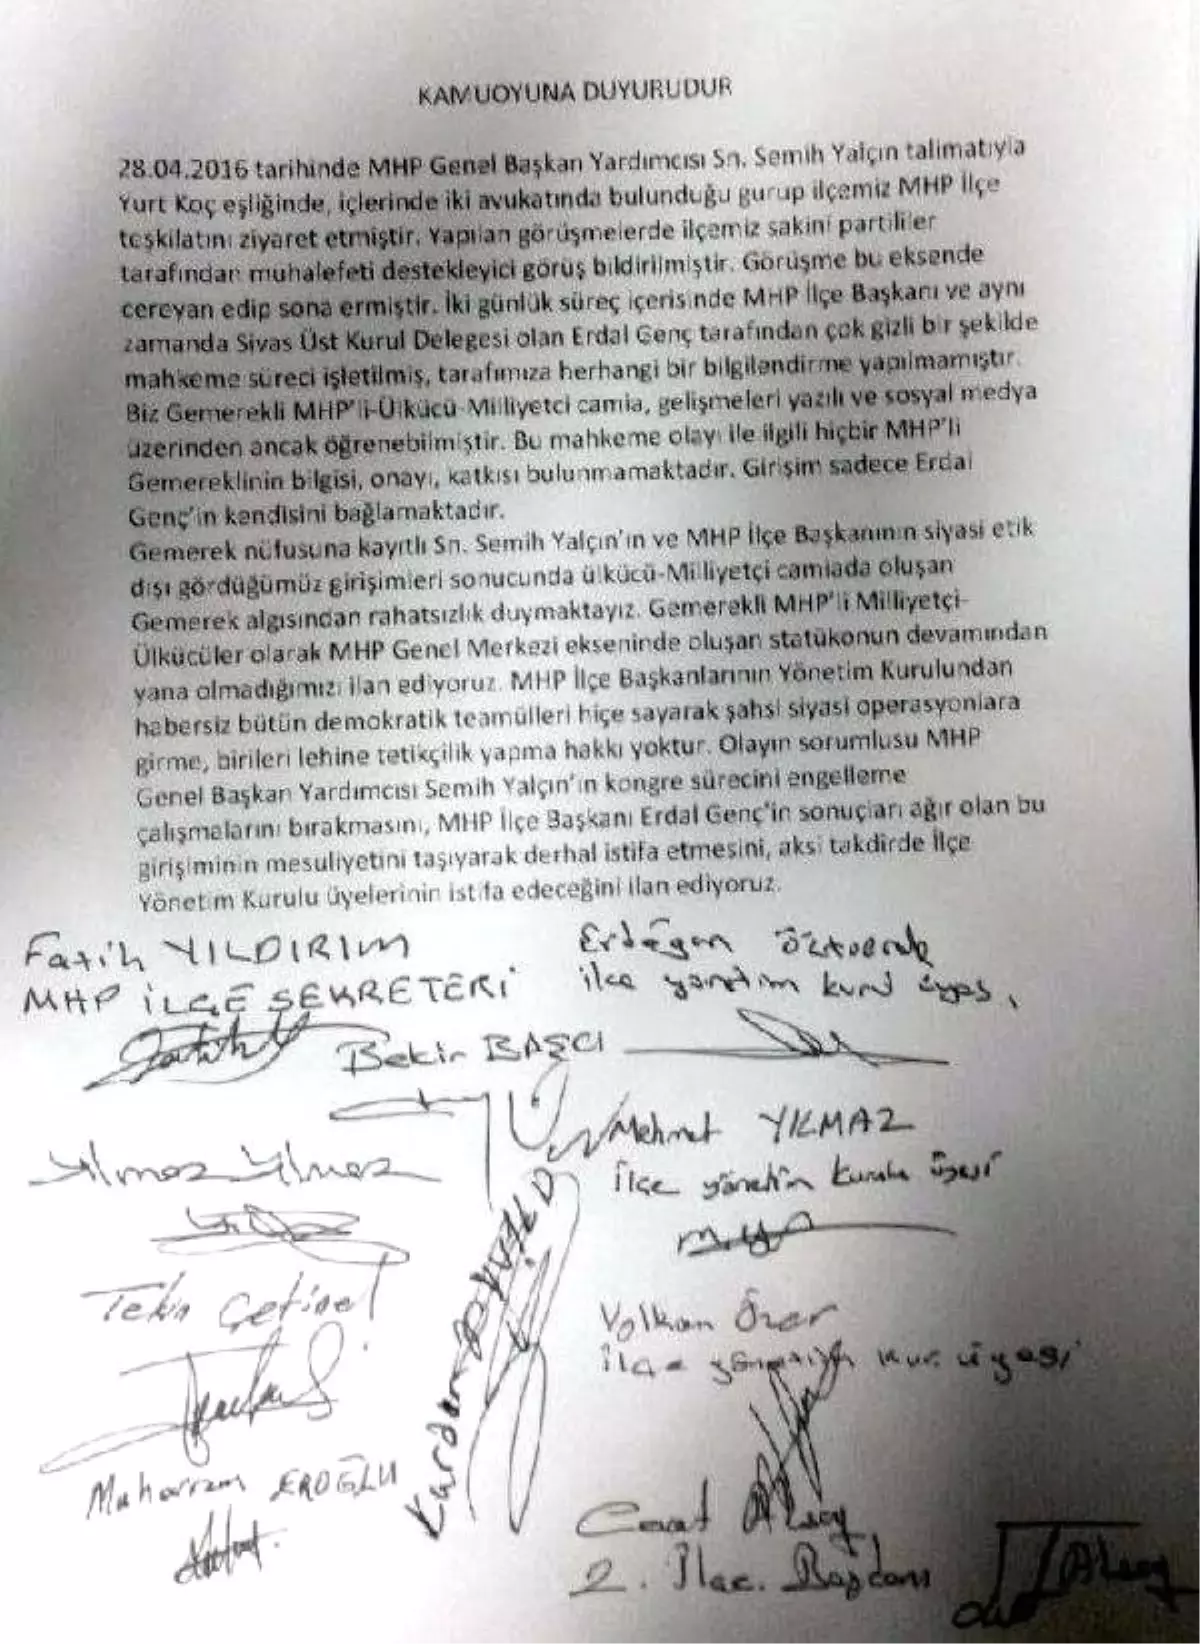 KAMUOYUNA DUYURUDUR
28.04.2016 tarihinde MHP Genel Başkan Yardımcısı Sn. Semih Yalçın talimatıyla
Yurt Koç eşliğinde, içlerinde iki avukatında bulunduğu gurup ilçemiz MHP İlçe
teşkilatını ziyaret etmiştir. Yapılan görüşmelerde ilçemiz sakini partililer
tarafından muhalefeti destekleyici görüş bildirilmiştir. Görüşme bu eksende
cereyan edip sona ermiştir. İki günlük süreç içerisinde MHP İlçe Başkanı ve aynı
zamanda Sivas Üst Kurul Delegesi olan Erdal Genç tarafından çok gizli bir şekilde
mahkeme süreci işletilmiş, tarafımıza herhangi bir bilgilendirme yapılmamıştır.
Biz Gemerekli MHP'li-Ülkücü-Milliyetci camia, gelişmeleri yazılı ve sosyal medya
üzerinden ancak öğrenebilmiştir. Bu mahkeme olayı ile ilgili hiçbir MHP'li
Gemereklinin bilgisi, onayı, katkısı bulunmamaktadır. Girişim sadece Erdal
Genç'in kendisini bağlamaktadır.
Gemerek nüfusuna kayıtlı Sn. Semih Yalçın'ın ve MHP İlçe Başkanının siyasi etik
dışı gördüğümüz girişimleri sonucunda ülkücü-Milliyetçi camiada oluşan
Gemerek algısından rahatsızlık duymaktayız. Gemerekli MHP'li Milliyetçi-
Ülkücüler olarak MHP Genel Merkezi ekseninde oluşan statükonun devamından
yana olmadığımızı ilan ediyoruz. MHP İlçe Başkanlarının Yönetim Kurulundan
habersiz bütün demokratik teamülleri hiçe sayarak şahsi siyasi operasyonlara
girme, birileri lehine tetikçilik yapma hakkı yoktur. Olayın sorumlusu MHP
Genel Başkan Yardımcısı Semih Yalçın'ın kongre sürecini engelleme
çalışmalarını bırakmasını, MHP İlçe Başkanı Erdal Genç'in sonuçları ağır olan bu
girişiminin mesuliyetini taşıyarak derhal istifa etmesini, aksi takdirde İlçe
Yönetim Kurulu üyelerinin istifa edeceğini ilan ediyoruz.
Fatih YILDIRIM
MHP İLÇE SEKRETERİ
Erdoğan
ilçe yönetim kurul üyesi
Bekir BAŞCI
Yılmaz Yılmaz
Mehmet YILMAZ
İlçe yönetim kurulu üyesi
Tekin Çetinel
Volkan Özer
ilçe yönetim kur. üyesi
Muharrem EROĞLU
Cevat Aksoy
2. İlçe. Başkanı